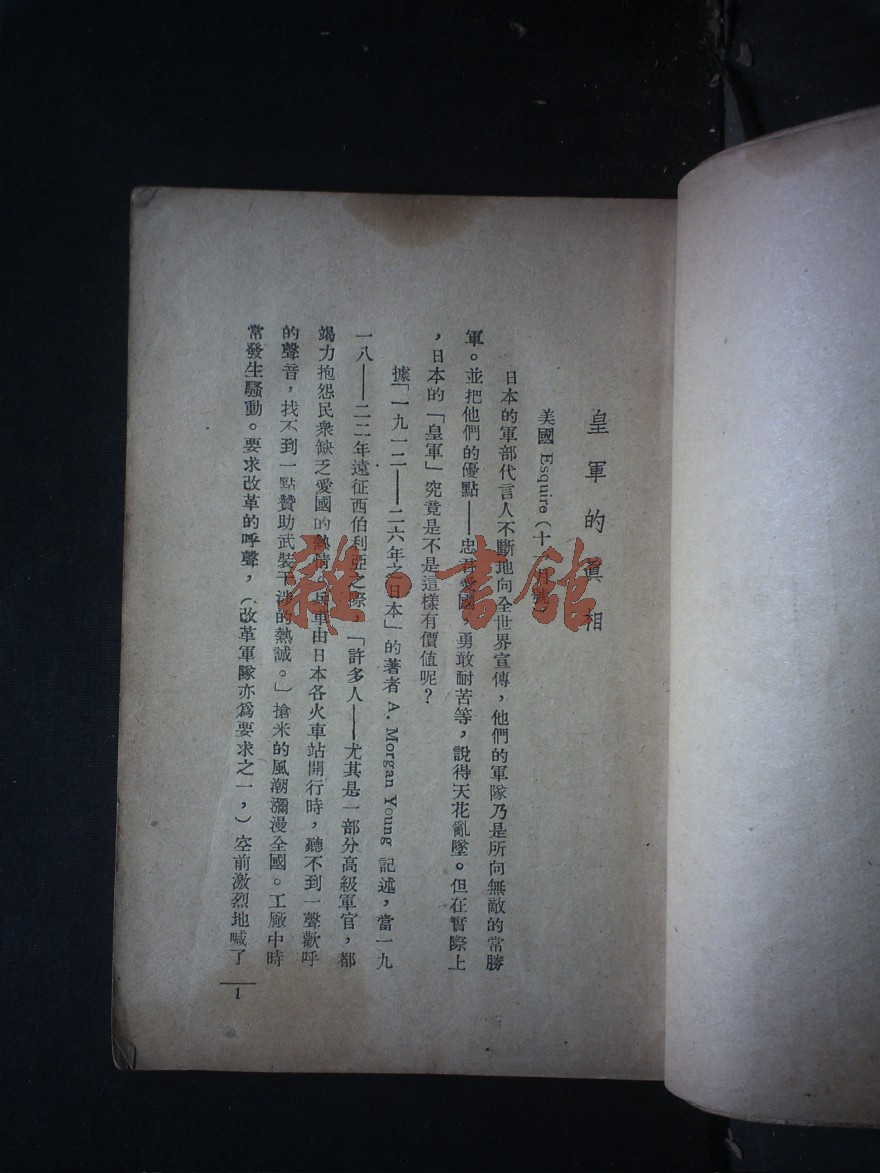 皇軍的眞相
美國 Esquire（十一月號）
日本的軍部代言人不斷地向全世界宣傳，他們的軍隊乃是所向無敵的常勝
軍。並把他們的優點——忠君愛國，勇敢耐苦等，說得天花亂墜。但在實際上
，日本的「皇軍」究竟是不是這樣有價值呢？
據「一九一二——二六年之日本」的著者 A. Morgan Young 記述，當一九
一八——二二年遠征西伯利亞之際，「許多人——尤其是一部分高級軍官，都
竭力抱怨民衆缺乏愛國的熱情。兵車由日本各火車站開行時，聽不到一聲歡呼
的聲音，找不到一點贊助武裝干涉的熱誠。」搶米的風潮瀰漫全國。工廠中時
常發生騷動。要求改革的呼聲，（改革軍隊亦爲要求之一，）空前激烈地喊了
1
雜·書館